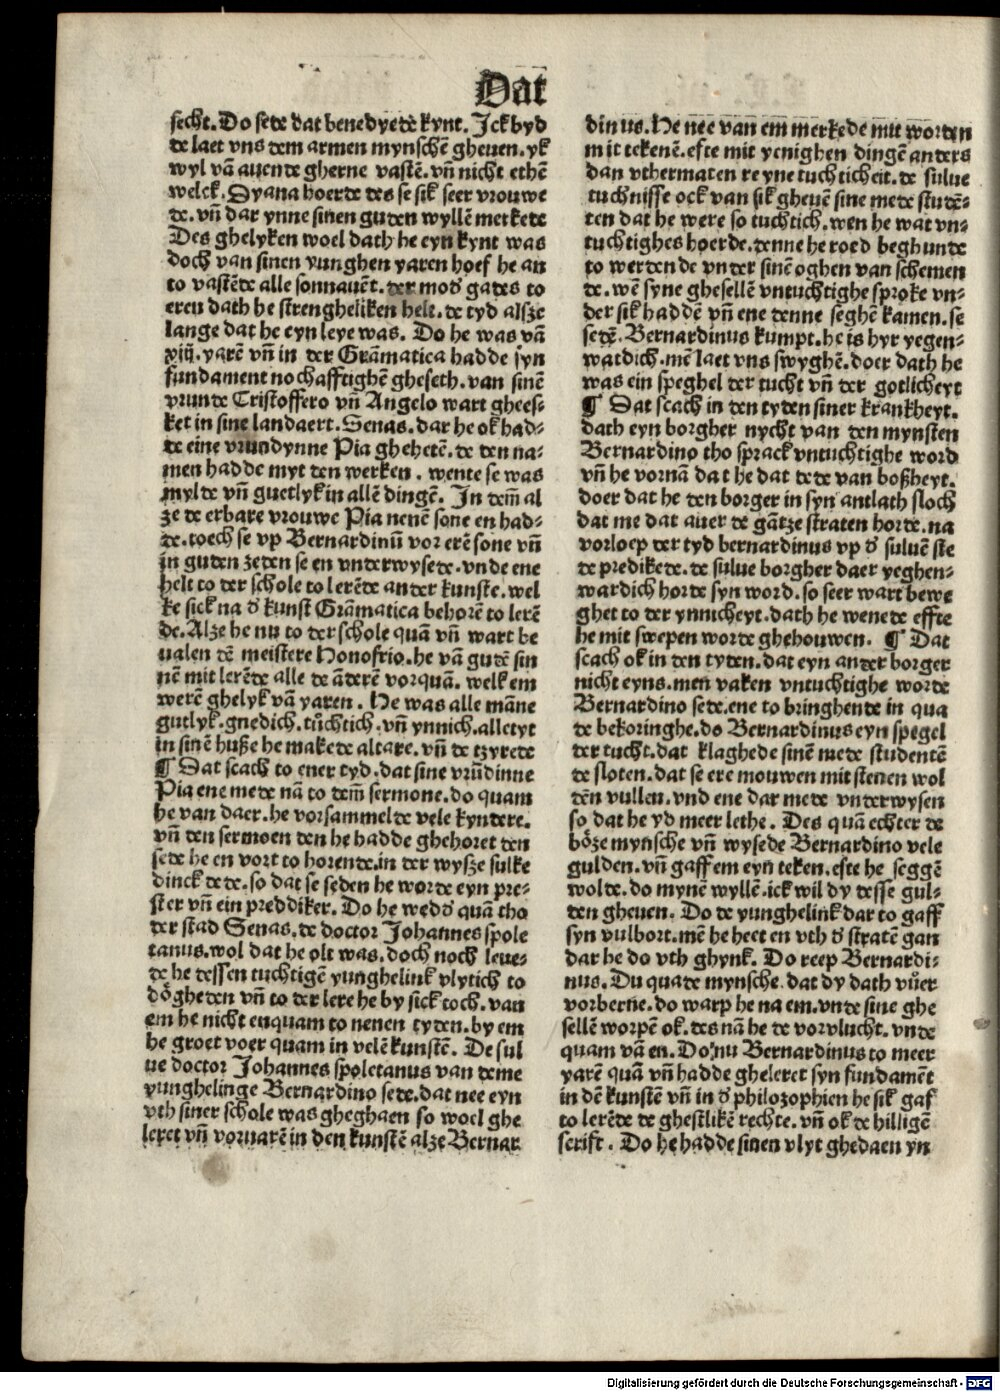 Dat
secht. Do sede dat benedyedē kynt. Ick byd
de laet vns dem armen mynschē gheuen. yk
wyl vā auende gherne vastē. vn̄ nicht ethē
welck. Dyana hoerde des se sik seer vrouwe
de. vn̄ dar ynne sinen guden wyllē merkede
Des ghelyken woel dath he eyn kynt was
doch van sinen yunghen yaren hoef he an
to vastēde alle sonnauēt. der mod̓ gades to
eren dath he strengheliken helt. de tyd alsze
lange dat he eyn leye was. Do he was vā
xiij. yarē vn̄ in der Grāmatica hadde syn
fundament nochafftighē gheseth. van sinē
vrunde Cristoffero vn̄ Angelo wart ghees⸗
ket in sine landaert. Senas. dar he ok had⸗
de eine vrundynne Pia ghehetē. de den na⸗
men hadde myt den werken. wente se was
mylde vn̄ guetlyk in allē dingē. In dem̄ al
ze de erbare vrouwe Pia nenē sone en had⸗
de. toech se vp Bernardinū vor erē sone vn̄
in guden zeden se en vnderwysede. vnde ene
helt to der schole to lerēde ander kunste. wel
ke sick na d̓ kunst Grāmatica behorē to lerē
de. Alze he nu to der schole quā vn̄ wart be
ualen dē meistere Honofrio. he vā gudē sin
nē mit lerēde alle de āderē vorquā. welk em
werē ghelyk vā yaren. He was alle māne
gutlyk. gnedich. tůchtich. vn̄ ynnich. alletyt
in sinē huße he makede altare. vn̄ de tzyrede
¶ Dat scach to ener tyd. dat sine vrūdinne
Pia ene mede nā to dem̄ sermone. do quam
he van daer. he vorsammelde vele kyndere.
vn̄ den sermoen den he hadde ghehoret den
sede he en vort to horende. in der wysze sulke
dinck dede. so dat se seden he worde eyn pre⸗
ster vn̄ ein preddiker. Do he wedd̓ quā tho
der stad Senas. de doctor Johannes spole
tanus. wol dat he olt was. doch noch leue⸗
de he dessen tuchtigē yunghelink vlytich to
dögheden vn̄ to der lere he by sick toch. van
em he nicht enquam to nenen tyden. by em
he groet voer quam in velē kunstē. De sul
ue doctor Johannes spoletanus van deme
yunghelinge Bernardino sede. dat nee eyn
vth siner schole was gheghaen so woel ghe
leret vn̄ voruarē in den kunstē alze Bernar
dinus. He nee van em merkede mit worden
mit tekenē. efte mit yenighen dingē anders
dan vthermaten reyne tuchticheit. de sulue
tuchnisse ock van sik gheuē sine mede studē⸗
ten dat he were so tuchtich. wen he wat vn⸗
tuchtighes hoerde. denne he roed beghunde
to werdende vnder sinē oghen van schemen
de. wē syne ghesellē vntuchtighe sproke vn⸗
der sik haddē vn̄ ene denne seghē kamen. se
sedē. Bernardinus kumpt. he is hyr yegen⸗
wardich. mē laet vns swyghē. doer dath he
was ein speghel der tucht vn̄ der gotlicheyt
¶ Dat scach in den tyden siner krankheyt.
dath eyn borgher nycht van den mynsten
Bernardino tho sprack vntuchtighe word
vn̄ he vornā dat he dat dede van boßheyt.
doer dat he den borger in syn antlath sloch
dat me dat auer de gātze straten horde. na
vorloep der tyd bernardinus vp d̓ suluē ste
de predikede. de sulue borgher daer yeghen⸗
wardich horde syn word. so seer wart bewe
ghet to der ynnicheyt. dath he wenede effte
he mit swepen worde ghehouwen. ¶ Dat
scach ok in den tyden. dat eyn ander borger
nicht eyns. men vaken vntuchtighe worde
Bernardino sede. ene to bringhende in qua
de bekoringhe. do Bernardinus eyn spegel
der tucht. dat klaghede sinē mede studentē
de sloten. dat se ere mouwen mit stenen wol
dēn vullen. vnd ene dar mede vnderwysen
so dat he yd meer lethe. Des quā echter de
böze mynsche vn̄ wysede Bernardino vele
gulden. vn̄ gaff em eyn teken. efte he seggē
wolde. do mynē wyllē. ick wil dy desse gul⸗
den gheuen. Do de yunghelink dar to gaff
syn vulbort. mē he heet en vth d̓ stratē gan
dar he do vth ghynk. Do reep Bernardi⸗
nus. Du quade mynsche. dat dy dath vůer
vorberne. do warp he na em. vnde sine ghe
sellē worpē ok. des nā he de vorvlucht. vnde
quam vā en. Do nu Bernardinus to meer
yarē quā vn̄ hadde gheleret syn fundamēt
in dē kunstē vn̄ in d̓ philozophien he sik gaf
to lerēde de ghestlikē rechte. vn̄ ok de hilligē
scrift. Do he hadde sinen vlyt ghedaen yn
Digitalisierung gefördert durch die Deutsche Forschungsgemeinschaft - DFG